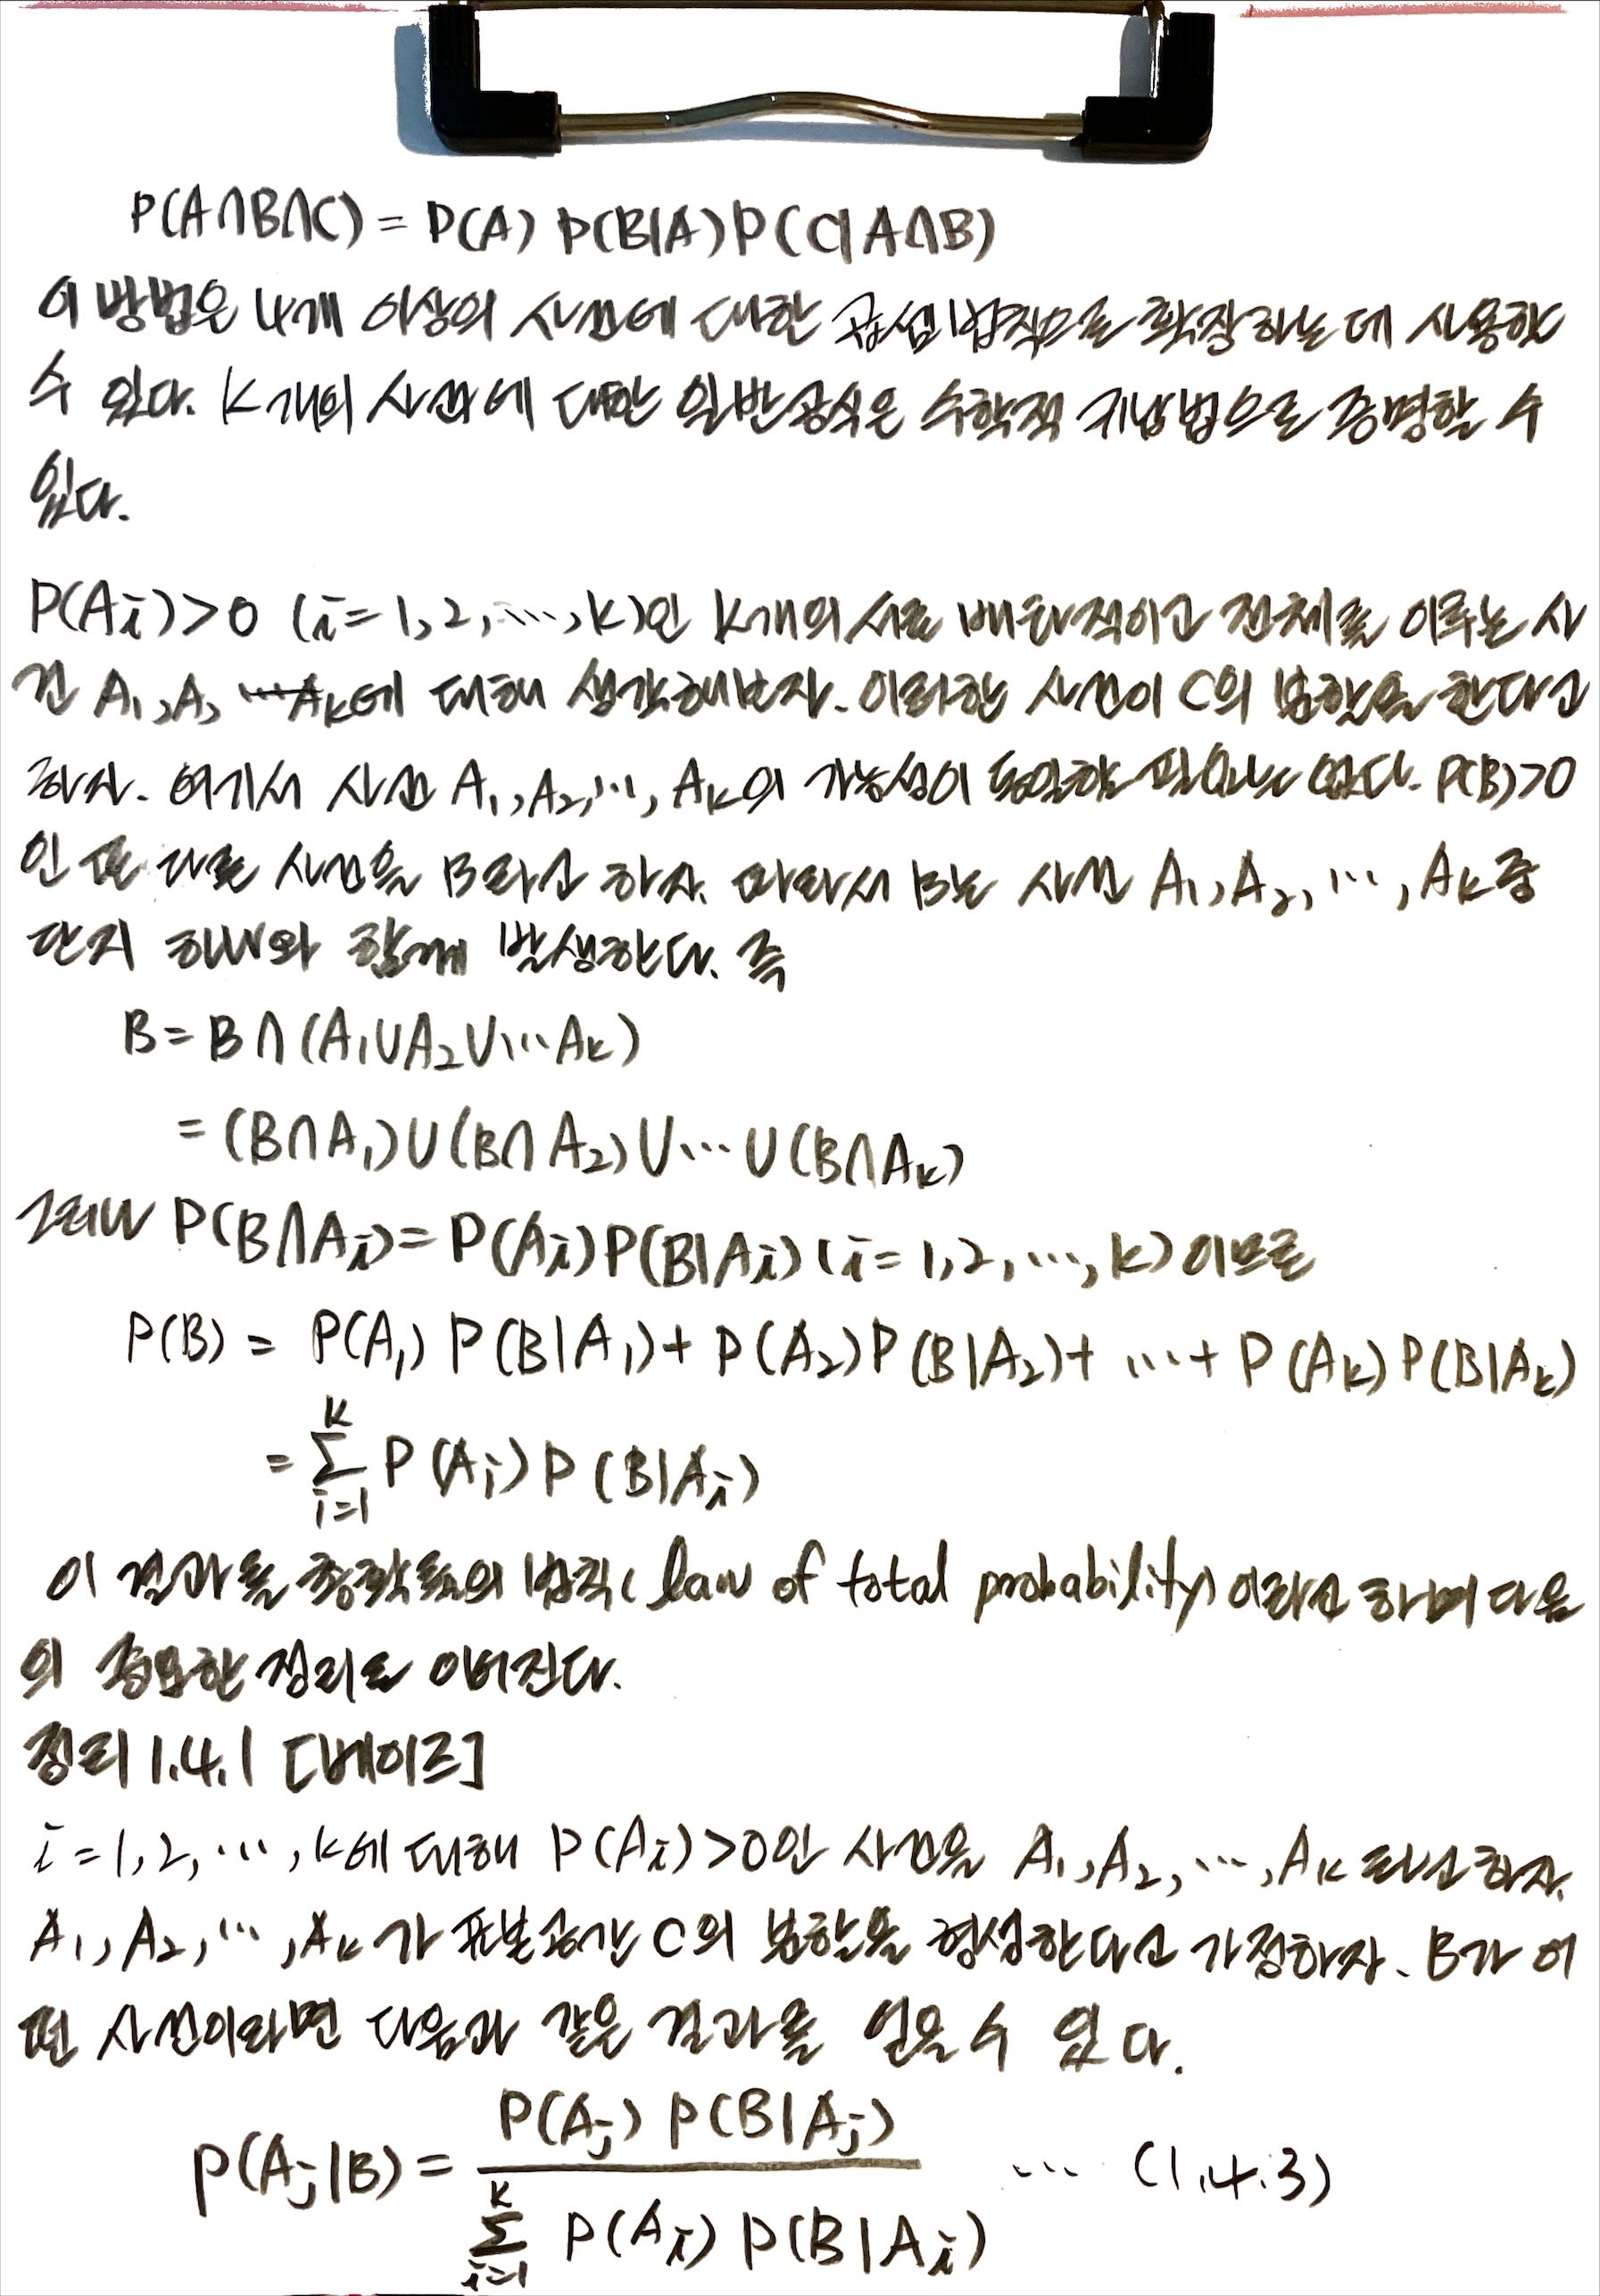 P(A∩B∩C) = P(A) P(B|A) P(C|A∩B)
이 방법은 4개 이상의 사건에 대한 곱셈법칙으로 확장하는 데 사용할
수 있다. K개의 사건에 대한 일반공식은 수학적 귀납법으로 증명할 수
있다.
P(Ai)>0 (i=1,2,…,k)인 k개의 서로 배타적이고 전체를 이루는 사
건 A1,A, …Ak에 대해 생각해보자. 이러한 사건이 C의 분할을 한다고
하자. 여기서 사건 A1,A2,…,Ak의 가능성이 동일할 필요는 없다. P(B)>0
인 또 다른 사건을 B라고 하자. 따라서 B는 사건 A1,A2,…,Ak 중
단지 하나와 함께 발생한다. 즉
B = B∩(A1∪A2∪…Ak)
= (B∩A1)∪(B∩A2)∪…∪(B∩Ak)
그러나 P(B∩Ai)=P(Ai)P(B|Ai) (i=1,2,…,k)이므로
P(B) = P(A1) P(B|A1)+P(A2)P(B|A2)+ …+P(Ak)P(B|Ak)
= Σ_{i=1}^{k} P(Ai)P(B|Ai)
이 결과를 총확률의 법칙(law of total probability)이라고 하며 다음
의 중요한 정리로 이어진다.
정리 1.4.1 [베이즈]
i=1,2,…,k에 대해 P(Ai)>0인 사건을 A1,A2,…,Ak라고 하자.
A1,A2,…,Ak가 표본공간 C의 분할을 형성한다고 가정하자. B가 어
떤 사건이라면 다음과 같은 결과를 얻을 수 있다.
P(Aj|B) = P(Aj) P(B|Aj) / Σ_{i=1}^{k} P(Ai) P(B|Ai) … (1.4.3)